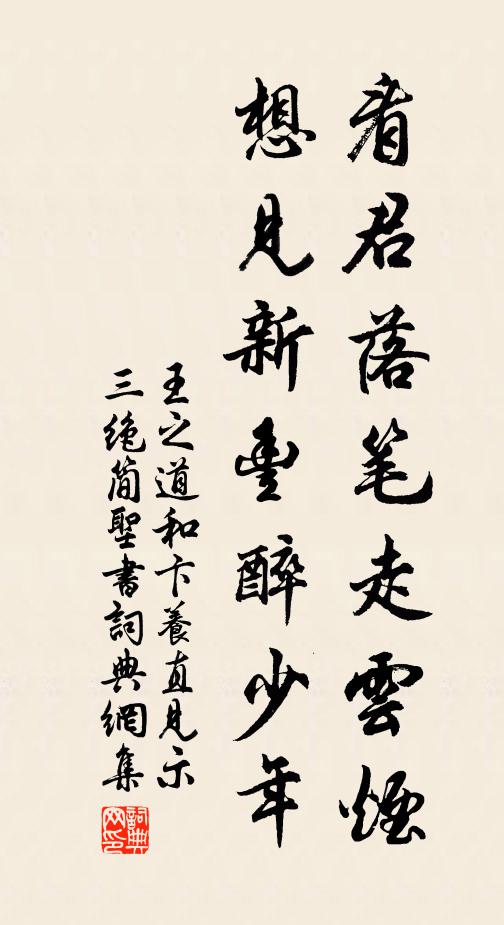 看君落笔走雲煙
想見新豐醉少年
王之道和卞養直見示
三絶简聖書詞典網集
詞典网印